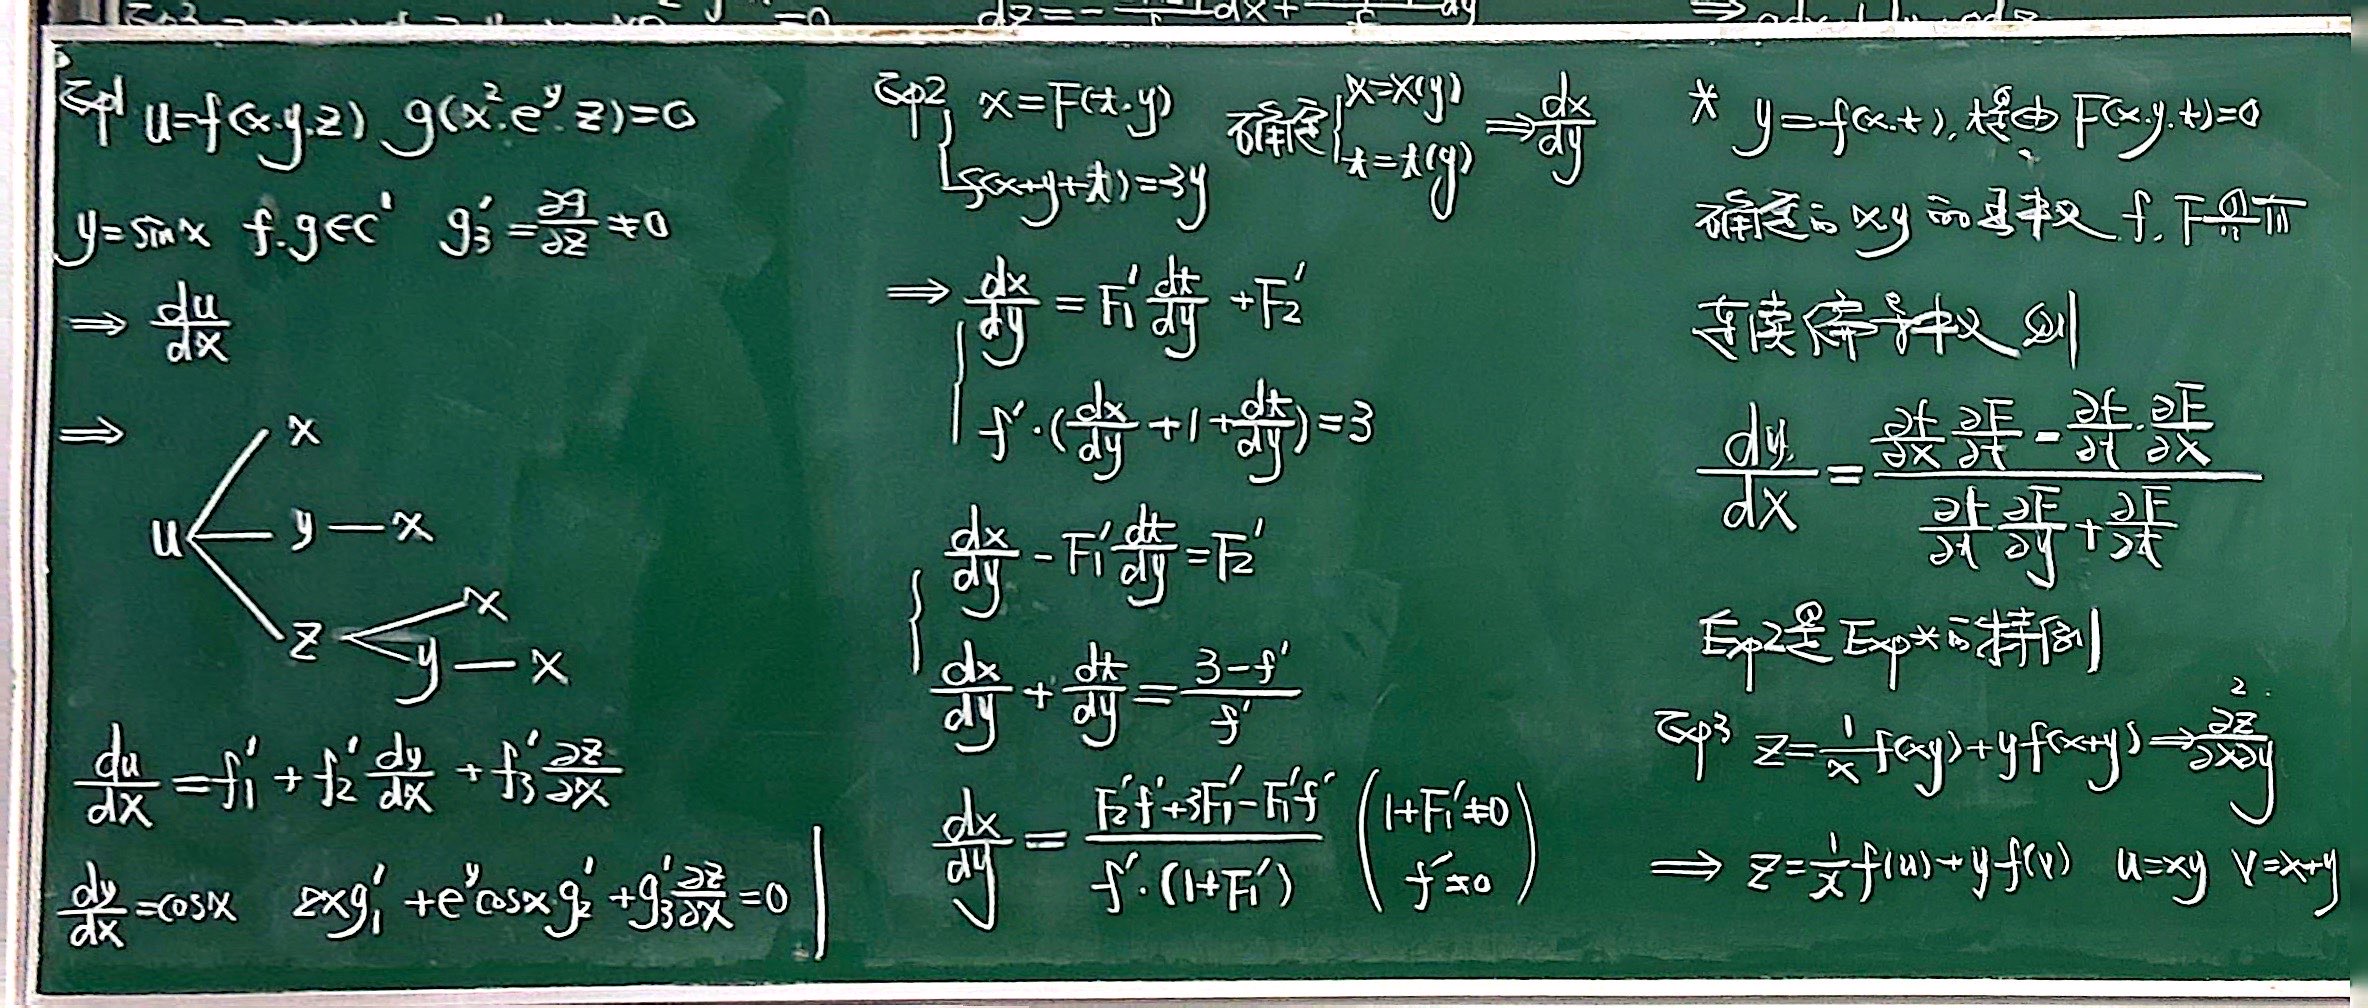 Exp1 u=f(x.y.z) g(x².eʸ.z)=0
y=sinx f.g∈c' g₃'=∂g/∂z≠0
⇒ du/dx
⇒
x
u y — x
z x
y — x
du/dx=f₁'+f₂'dy/dx+f₃'∂z/∂x
dy/dx=cosx 2xg₁'+eʸcosx.g₂'+g₃'∂z/∂x=0
Exp2 { x=F(t.y) 确定 { x=x(y) ⇒ dx/dy
f(x+y+t)=3y t=t(y)
⇒ dx/dy=F₁'dt/dy+F₂'
f'·(dx/dy+1+dt/dy)=3
{ dx/dy-F₁'dt/dy=F₂'
dx/dy+dt/dy=(3-f')/f'
dx/dy=(F₂'f'+3F₁'-F₁'f')/(f'·(1+F₁')) (1+F₁'≠0
f'≠0)
* y=f(x.t),t是由F(x.y.t)=0
确定的xy的函数 f.F具有
连续偏导数 则
dy/dx=(∂f/∂x ∂F/∂t-∂f/∂t·∂F/∂x)/(∂f/∂t ∂F/∂y+∂F/∂t)
Exp2是Exp*的特例
Exp3 z=1/x f(xy)+yf(x+y)⇒∂²z/∂x∂y
⇒ z=1/x f(u)+yf(v) u=xy v=x+y